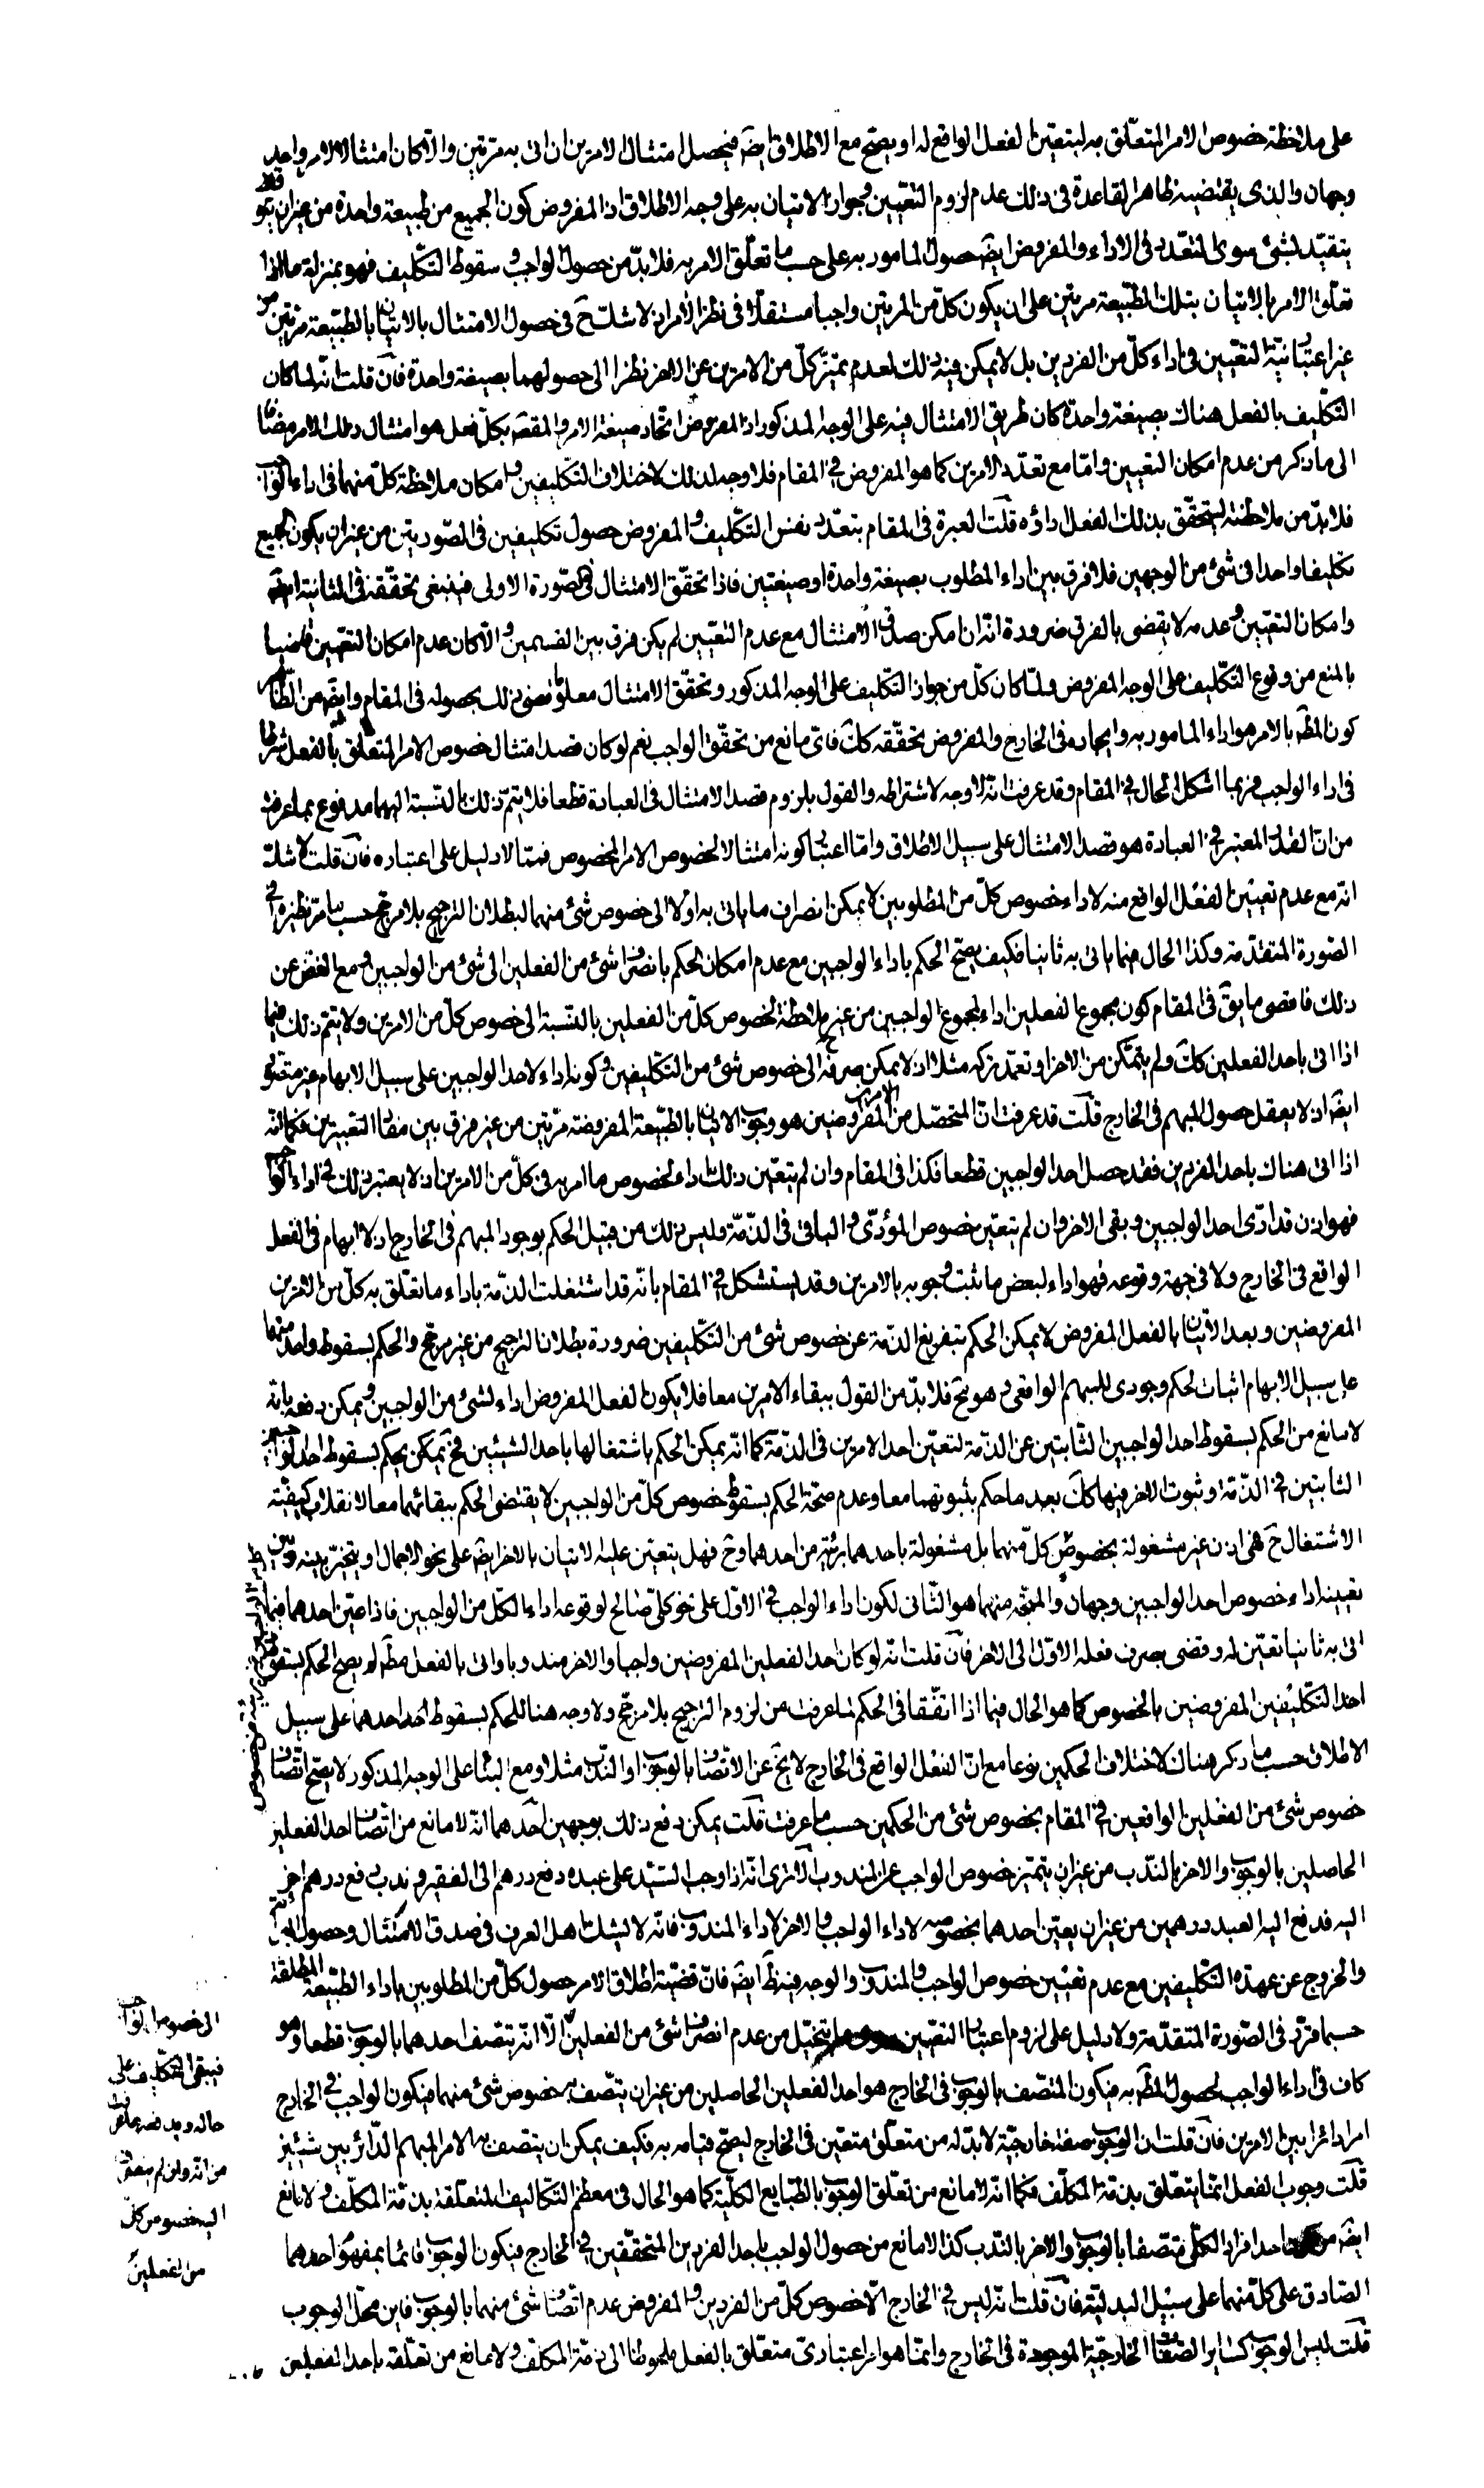 على ملاحظة خصوص الامر المتعلّق به ليتعيّن الفعل الواقع له او يصحّ مع الاطلاق ايضا فيحصل امتثال الامرين ان اتى به مرّتين والّا كان امتثالا لامر واحد
وجهان والذى يقتضيه ظاهر القاعدة فى ذلك عدم لزوم التعيين وجواز الاتيان به على وجه الاطلاق اذ المفروض كون الجميع من طبيعة واحدة من غير ان
يتقيّد بشئ سوى التعدّد فى الاداء والمفروض ايضا حصول المامور به على حسب ما تعلّق الامر به فلا بدّ من حصول الواجب وسقوط التكليف فهو بمنزلة ما اذا
تعلّق الامر بالاتيان بتلك الطبيعة مرتين على ان يكون كلّ من المرتين واجبا مستقلّا فى نظر الأمر اذ لا شك ح فى حصول الامتثال بالاتيان بالطبيعة مرتين من
غير اعتبار نيّة التعيين فى اداء كلّ من الفردين بل لا يمكن فيه ذلك لعدم تميّز كلّ من الامرين عن الاخر نظرا الى حصولهما بصيغة واحدة فان قلت انّه لما كان
التكليف بالفعل هناك بصيغة واحدة كان طريق الامتثال فيه على الوجه المذكور اذ المفروض اتّحاد صيغة الامر والمقصود بكلّ فعل هو امتثال ذلك الامر مضافا
الى ما ذكر من عدم امكان التعيين وامّا مع تعدّد الامرين كما هو المفروض فى المقام فلا وجه لذلك لاختلاف التكليفين وامكان ملاحظة كلّ منهما فى اداء الواجب
فلا بدّ من ملاحظته ليتحقّق بذلك الفعل اداؤه قلت العبرة فى المقام بتعدّد نفس التكليف والمفروض حصول تكليفين فى الصّورتين من غير ان يكون الجميع
تكليفا واحدا فى شئ من الوجهين فلا فرق بين اداء المطلوب بصيغة واحدة او صيغتين فاذا تحقّق الامتثال فى الصّورة الاولى فينبغى تحقّقه فى الثانية ايضا
وامكان التعيين وعدمه لا يقضى بالفرق ضرورة انّه ان امكن صدق الامتثال مع عدم التعيين لم يكن فرق بين القسمين والّا كان عدم امكان التعيين قاضيا
بالمنع من وقوع التكليف على الوجه المفروض ولمّا كان كلّ من جواز التكليف على الوجه المذكور وتحقّق الامتثال معلوما قضى ذلك بحصوله فى المقام وايضا من الظاهر
كون المط بالامر هو اداء المامور به وايجاده فى الخارج والمفروض تحققه كك فاىّ مانع من تحقّق الواجب نعم لو كان قصد امتثال خصوص الامر المتعلق بالفعل شرطا
فى اداء الواجب فربما اشكل الحال فى المقام وقد عرفت انّه لا وجه لاشتراطه والقول بلزوم قصد الامتثال فى العبادة قطعا فلا يتمّ ذلك بالنسبة اليهما مدفوع بما عرفت
من انّ القدر المعتبر فى العبادة هو قصد الامتثال على سبيل الاطلاق وامّا اعتبار كونه امتثالا لخصوص الامر المخصوص فممّا لا دليل على اعتباره فان قلت لا شكّ
انّه مع عدم تعيين الفعل الواقع منه لاداء خصوص كلّ من المطلوبين لا يمكن انصراف ما ياتى به اوّلا الى خصوص شئ منهما لبطلان الترجيح بلا مرجح حسب ما مرّ نظيره فى
الصّورة المتقدّمة وكذا الحال فيما ياتى به ثانيا فكيف يصحّ الحكم باداء الواجبين مع عدم امكان الحكم بانصراف شئ من الفعلين الى شئ من الواجبين ومع الغضّ عن
ذلك فاقصى ما يق فى المقام كون مجموع الفعلين اداء لمجموع الواجبين من غير ملاحظة لخصوص كلّ من الفعلين بالنسبة الى خصوص كلّ من الامرين ولا يتمّ ذلك فيما
اذا اتى باحد الفعلين كك ولم يتمكّن من الاخر او تعمّد تركه مثلا اذ لا يمكن صرفه ح الى خصوص شئ من التكليفين وكونه اداء لاحد الواجبين على سبيل الابهام غير متصوّر
ايضا اذ لا يعقل حصول المبهم فى الخارج قلت قد عرفت انّ المتحصّل من الامرين المفروضين هو وجوب الاتيان بالطبيعة المفروضة مرّتين من غير فرق بين مفاد التعبيرين فكما انّه
اذا اتى هناك باحد الفردين فقد حصل احد الواجبين قطعا فكذا فى المقام وان لم يتعيّن ذلك اداء لخصوص ما امر به فى كلّ من الامرين اذ لا يعتبر ذلك فى اداء الواجب
فهو اذن قد ادّى احد الواجبين وبقى الاخر وان لم يتعيّن خصوص المؤدّى والباقى فى الذمّة وليس ذلك من قبيل الحكم بوجود المبهم فى الخارج اذ لا ابهام فى الفعل
الواقع فى الخارج ولا فى جهة وقوعه فهو اداء لبعض ما ثبت وجوبه بالامرين وقد يستشكل فى المقام بانّه قد اشتغلت الذمّة باداء ما تعلّق به كلّ من الامرين
المفروضين وبعد الاتيان بالفعل المفروض لا يمكن الحكم بتفريغ الذمّة عن خصوص شئ من التكليفين ضرورة بطلان الترجيح من غير مرجّح والحكم بسقوط واحد منهما
على سبيل الابهام اثبات لحكم وجودى للمبهم الواقعى وهو مح فلا بدّ من القول ببقاء الامرين معا فلا يكون الفعل المفروض اداء لشئ من الواجبين ويمكن دفعه بانّه
لا مانع من الحكم بسقوط احد الواجبين الثابتين عن الذمّة لتعيّن احد الامرين فى الذمّة كما انّه يمكن الحكم باشتغالها باحد الشيئين فح يمكن يحكم بسقوط احد الواجبين
الثابتين فى الذمّة وثبوت الاخر فيها كك بعد ما حكم بثبوتهما معا وعدم صحّة الحكم بسقوط خصوص كلّ من الواجبين لا يقتضى الحكم ببقائهما معا لانقلاب كيفيّته
الاشتغال ح فهى اذن غير مشغولة بخصوص كلّ منهما بل مشغولة باحدهما برئية من احدهما وح فهل يتعيّن عليه الاتيان بالاخر ايضا على نحو الاجمال او يتخيّر بينه وبين
تعيينه اداء خصوص احد الواجبين وجهان والمتّجه منهما هو الثّانى لكون اداء الواجب فى الاوّل على نحو كلّىّ صالح لوقوعه اداء لكلّ من الواجبين فاذا عيّن احدهما فيما
اتى به ثانيا تعيّن له وقضى بصرف فعله الاوّل الى الاخر فان قلت انّه لو كان احد الفعلين المفروضين واجبا والاخر مندوبا واتى بالفعل مطلقا لم يصحّ الحكم بسقوط
احد التكليفين المفروضين بالخصوص كما هو الحال فيما اذا اتّفقا فى الحكم لما عرفت من لزوم الترجيح بلا مرجّح ولا وجه هنا للحكم بسقوط احدهما على سبيل
الاطلاق حسب ما ذكر هناك لاختلاف الحكمين نوعا مع انّ الفعل الواقع فى الخارج لا يخ عن الاتّصاف بالوجوب او الندب مثلا ومع البناء على الوجه المذكور لا يصحّ اتّصاف
خصوص شئ من الفعلين الواقعين فى المقام بخصوص شئ من الحكمين حسب ما عرفت قلت يمكن دفع ذلك بوجهين احدهما انّه لا مانع من اتّصاف احد الفعلين
الحاصلين بالوجوب والاخر بالندب من غير ان يتميّز خصوص الواجب عن المندوب الا ترى انّه اذا اوجب السيّد على عبده دفع درهم الى الفقير وندب دفع درهم اخر
اليه فدفع اليه العبد درهمين من غير ان يعيّن احدهما بخصوصه لاداء الواجب والاخر لاداء المندوب فانّه لا يشكّ اهل العرف فى صدق الامتثال وحصول
والخروج عن عهدة التكليفين مع عدم تعيين خصوص الواجب والمندوب والوجه فيه ظ ايضا فانّ قضيّة اطلاق الامر حصول كلّ من المطلوبين باداء الطبيعة المطلقة
حسبما قرّر فى الصّورة المتقدّمة ولا دليل على لزوم اعتبار التعيين يتخيّل من عدم انصراف شئ من الفعلين الّا انّه يتّصف احدهما بالوجوب قطعا وهو
كاف فى اداء الواجب لحصول المط به فيكون المتّصف بالوجوب فى الخارج هو احد الفعلين الحاصلين من غير ان يتّصف به خصوص شئ منهما فيكون الواجب فى الخارج
امرا دائرا بين الامرين فان قلت ان الوجوب صفة خارجيّة لا بدّ له من متعلّق متعيّن فى الخارج ليصحّ قيامه به فكيف يمكن ان يتّصف به الامر المبهم الدّائر بين شيئين
قلت وجوب الفعل انّما يتعلّق بذمّة المكلّف فكما انّه لا مانع من تعلّق الوجوب بالطبايع الكلّية كما هو الحال فى معظم التكاليف المتعلّقة بذمّة المكلّف ولا مانع
ايضا من احد افراد الكلّى متّصفا بالوجوب والاخر بالندب كذا لا مانع من حصول الواجب باحد الفردين المتحقّقين فى الخارج فيكون الوجوب قائما بمفهوم احدهما
الصّادق على كلّ منهما على سبيل البدليّة فان قلت انّه ليس فى الخارج الّا خصوص كلّ من الفردين والمفروض عدم اتّصاف شئ منهما بالوجوب فاين محلّ الوجوب
قلت ليس الوجوب كساير الصّفات الخارجيّة الموجودة فى الخارج وانّما هو امر اعتبارىّ متعلّق بالفعل ملحوظا الى ذمّة المكلّف ولا مانع من تعلّقه باحد الفعلين
الى خصوص الواجب
فيبقى التكليف على
حاله ويدفعه ما عرفت
من انّه وان لم ينصرف
اليه خصوص كلّ
من الفعلين